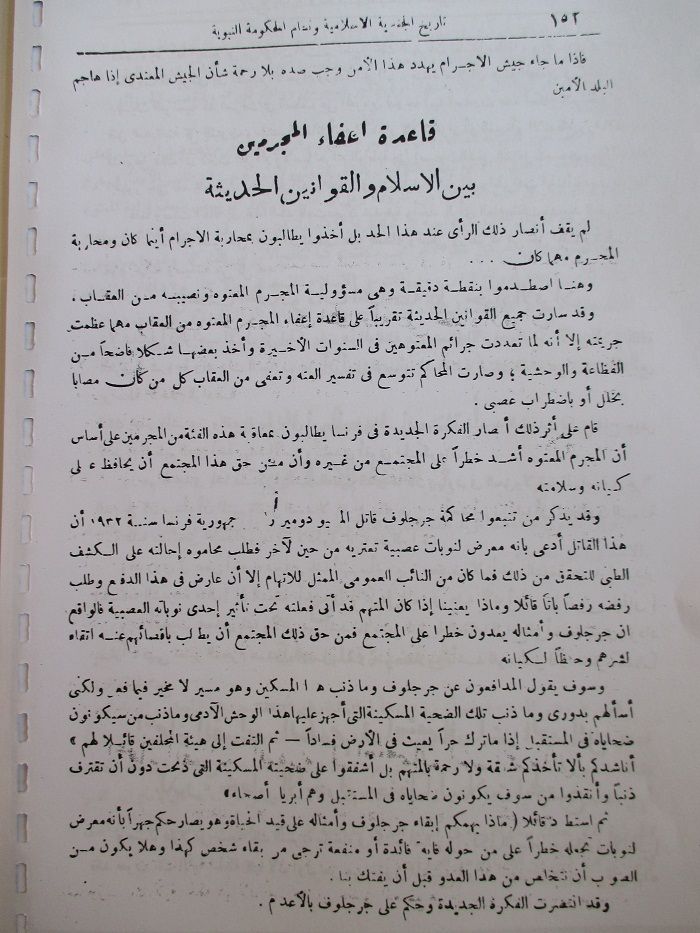 ١٥٢
تاريخ الجندية الاسلامية ونظام الحكومة النبوية
فاذا ما جاء جيش الاجرام يهدد هذا الأمن وجب صده بلا رحمة شأن الجيش المعتدى إذا هاجم
البلد الأمين
قاعدة اعفاء المجرمين
بين الاسلام والقوانين الحديثة
لم يقف أنصار ذلك الرأى عند هذا الحد بل أخذوا يطالبون بمحاربة الاجرام أينما كان ومحاربة
المجرم مهما كان . . .
وهنا اصطدموا بنقطة دقيقة وهى مسؤولية المجرم المعتوه ونصيبه من العقاب .
وقد سارت جميع القوانين الحديثة تقريباً على قاعدة إعفاء المجرم المعتوه من العقاب مهما عظمت
جريمته إلا أنه لما تعددت جرائم المعتوهين فى السنوات الأخيرة وأخذ بعضها شكلا فاضحاً من
الفظاعة والوحشية ؛ وصارت المحاكم تتوسع فى تفسير العته وتعفى من العقاب كل من كان مصابا
بخلل أو باضطراب عصبى .
قام على أثر ذلك أنصار الفكرة الجديدة فى فرنسا يطالبون بمعاقبة هذه الفئة من المجرمين على أساس
أن المجرم المعتوه أشد خطراً على المجتمع من غيره وأن من حق هذا المجتمع أن يحافظ على
كيانه وسلامته
وقد يذكر من تتبعوا محاكمة جرجلوف قاتل المسيو دومير جمهورية فرنسا سنة ١٩٣٢ أن
هذا القاتل أدعى بانه معرض لنوبات عصبية تعتريه من حين لآخر فطلب محاموه إحالته على الكشف
الطبى للتحقق من ذلك فما كان من النائب العمومى الممثل للاتهام إلا أن عارض فى هذا الدفع وطلب
رفضه رفضاً باتاً قائلا وماذا يعنينا إذا كان المتهم قد أتى فعلته تحت تأثير إحدى نوباته العصبية فالواقع
ان جرجلوف وأمثاله يعدون خطرا على المجتمع فمن حق ذلك المجتمع أن يطالب باقصائهم عنه اتقاء
لشرهم وحفظاً لكيانه
وسوف يقول المدافعون عن جرجلوف وما ذنب هذا المسكين وهو مسير لا مخير فيما فعل ولكنى
أسألهم بدورى وما ذنب تلك الضحية المسكينة التى أجهز عليها هذا الوحش الآدمى وما ذنب من سيكونون
ضحاياه فى المستقبل إذا ماترك حراً يعيث فى الأرض فساداً — ثم التفت إلى هيئة المحلفين قائلا لهم »
أناشدكم بألا تأخذكم شفقة ولا رحمة بالمتهم بل أشفقوا على ضحيته المسكينة التى ذبحت دون أن تقترف
ذنباً وأنقذوا من سوف يكونون ضحاياه فى المستقبل وهم أبرياء أصحاء»
ثم استطرد قائلا ( ماذا يهمكم إبقاء جرجلوف وأمثاله على قيد الحياة وهو يصارحكم جهراً بأنه معرض
لنوبات تجعله خطراً على من حوله فأية فائدة أو منفعة ترجى من بقاء شخص كهذا وهلا يكون من
الصوب أن نتخلص من هذا العدو قبل أن يفتك بنا .
وقد انتصرت الفكرة الجديدة وحكم على جرجلوف بالأعدم .